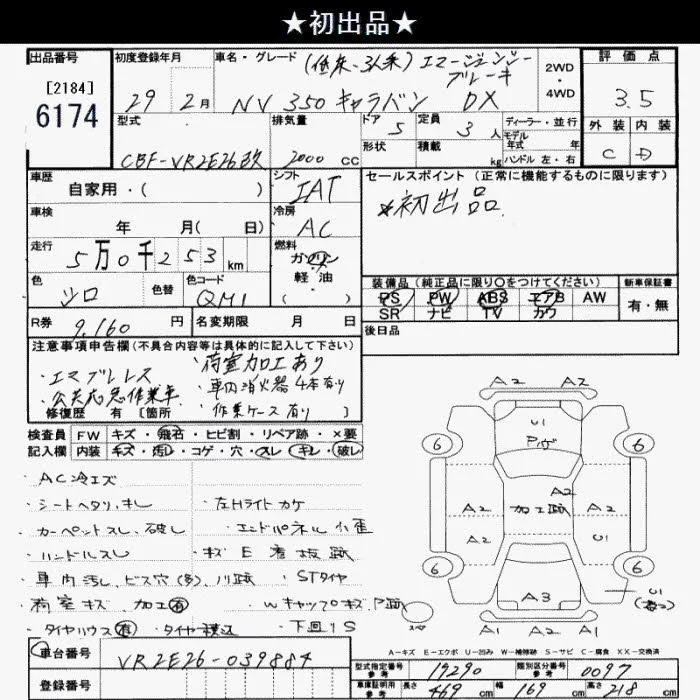 ★初出品★
出品番号
[2184]
6174
初度登録年月
29 2月
車名・グレード
(低床-3人乗) エマージェンシー
ブレーキ
NV 350 キャラバン DX
2WD
・
4WD
評価点
3.5
外装 内装
C D
型式
CBF-VR2E26改
排気量
2000 cc
ドア 5
形状
定員 3 人
積載 kg
ディーラー・並行
モデル
年式 年
ハンドル 左・右
車歴
自家用・( )
シフト
IAT
セールスポイント (正常に機能するものに限ります)
*初出品
車検
年 月( 日)
冷房
AC
走行
5万0千253 km
燃料
ガソリン
・
軽・油
( )
色
シロ
色替
色コード
QM1
装備品 (純正品に限り〇をつけてください)
PS PW ABS エアB AW
SR ナビ TV カワ
新車保証書
有・無
R券 9,160 円
名変期限 月 日
後日品
注意事項申告欄 (不具合内容等は具体的に記入して下さい)
・エマブレレス
・公共応急作業車
・荷室加工あり
・車内消火器4本有り
・作業ケース有り
修復歴 有 [箇所 ]
検査員 FW キズ・飛石・ヒビ割・リペア跡・×要
記入欄 内装 キズ・汚レ・コゲ・穴・スレ・キレ・破レ
・AC冷エズ
・シートヘタリ、キレ
・左Hライトカケ
・カーペントスレ、破レ
・エンドパネル小歪
・ハンドルスレ
・キズE看板跡
・車内汚レ、ビス穴(多)、ハリ跡
・STタイヤ
・荷室キズ、加工有
・Wキャップキズ P跡
・タイヤハウス有
・タイヤ積込
・下回りS
A2 A2
U1
Pヅ
6 6
A2
A2 加工跡 A2
A2 U1
6 6
A3
U1
スペア
A1 A1 A1
A-キズ E-エクボ U-凹み W-補修跡 S-サビ C-腐食 XX-交換済
車台番号
VR2E26-039884
登録番号
型式指定番号
参考
19290
類別区分番号
参考
0097
車庫証明用
参考
長さ 469 cm 幅 169 cm 高さ 218 cm